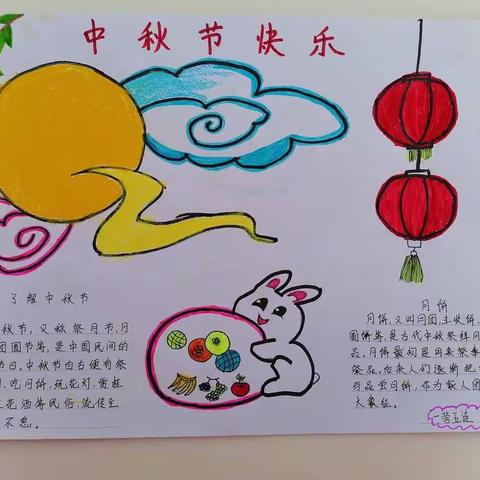 中秋节快乐
了解中秋节
秋节,又称祭月节,月
团圆节等,是中国民间的
节日。中秋节自古便有祭
、吃月饼、玩花灯、赏桂
花酒等民俗,流传至
不息。
月饼
月饼,又叫月团、
圆饼等,是古代中秋祭拜月
品,月饼最初是用来祭
祭品,后来人们逐渐把
与品尝月饼,作为家人团
大象征。